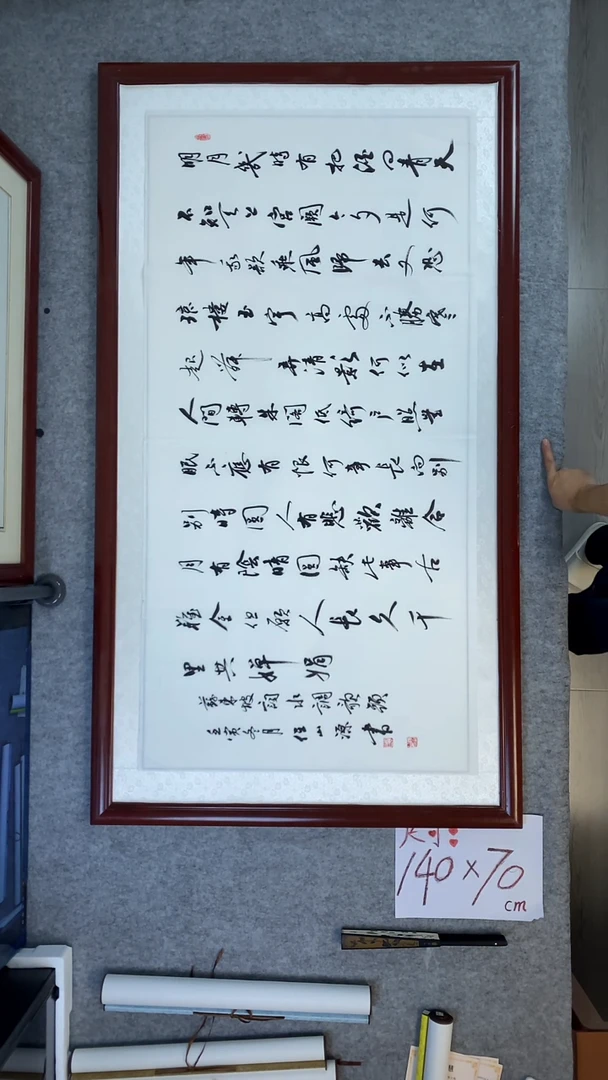 明月幾時有把酒問青天
不知天上宮闕今夕是何
年我欲乘風歸去又恐
瓊樓玉宇高處不勝寒
起舞弄清影何似在
人間轉朱閣低綺戶照無
眠不應有恨何事長向別
別時圓人有悲歡離合
月有陰晴圓缺此事古
難全但願人長久千
里共嬋娟
蘇東坡詞水調歌頭
壬寅冬月任山源書
尺寸:
140×70
cm